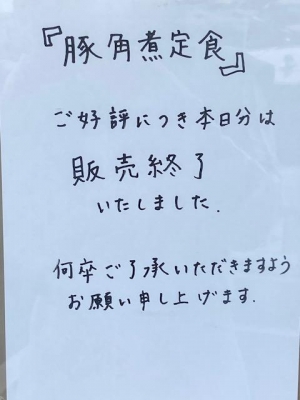 『豚角煮定食』
ご好評につき本日分は
販売終了
いたしました.
何卒ご了承いただきますよう
お願い申し上げます.